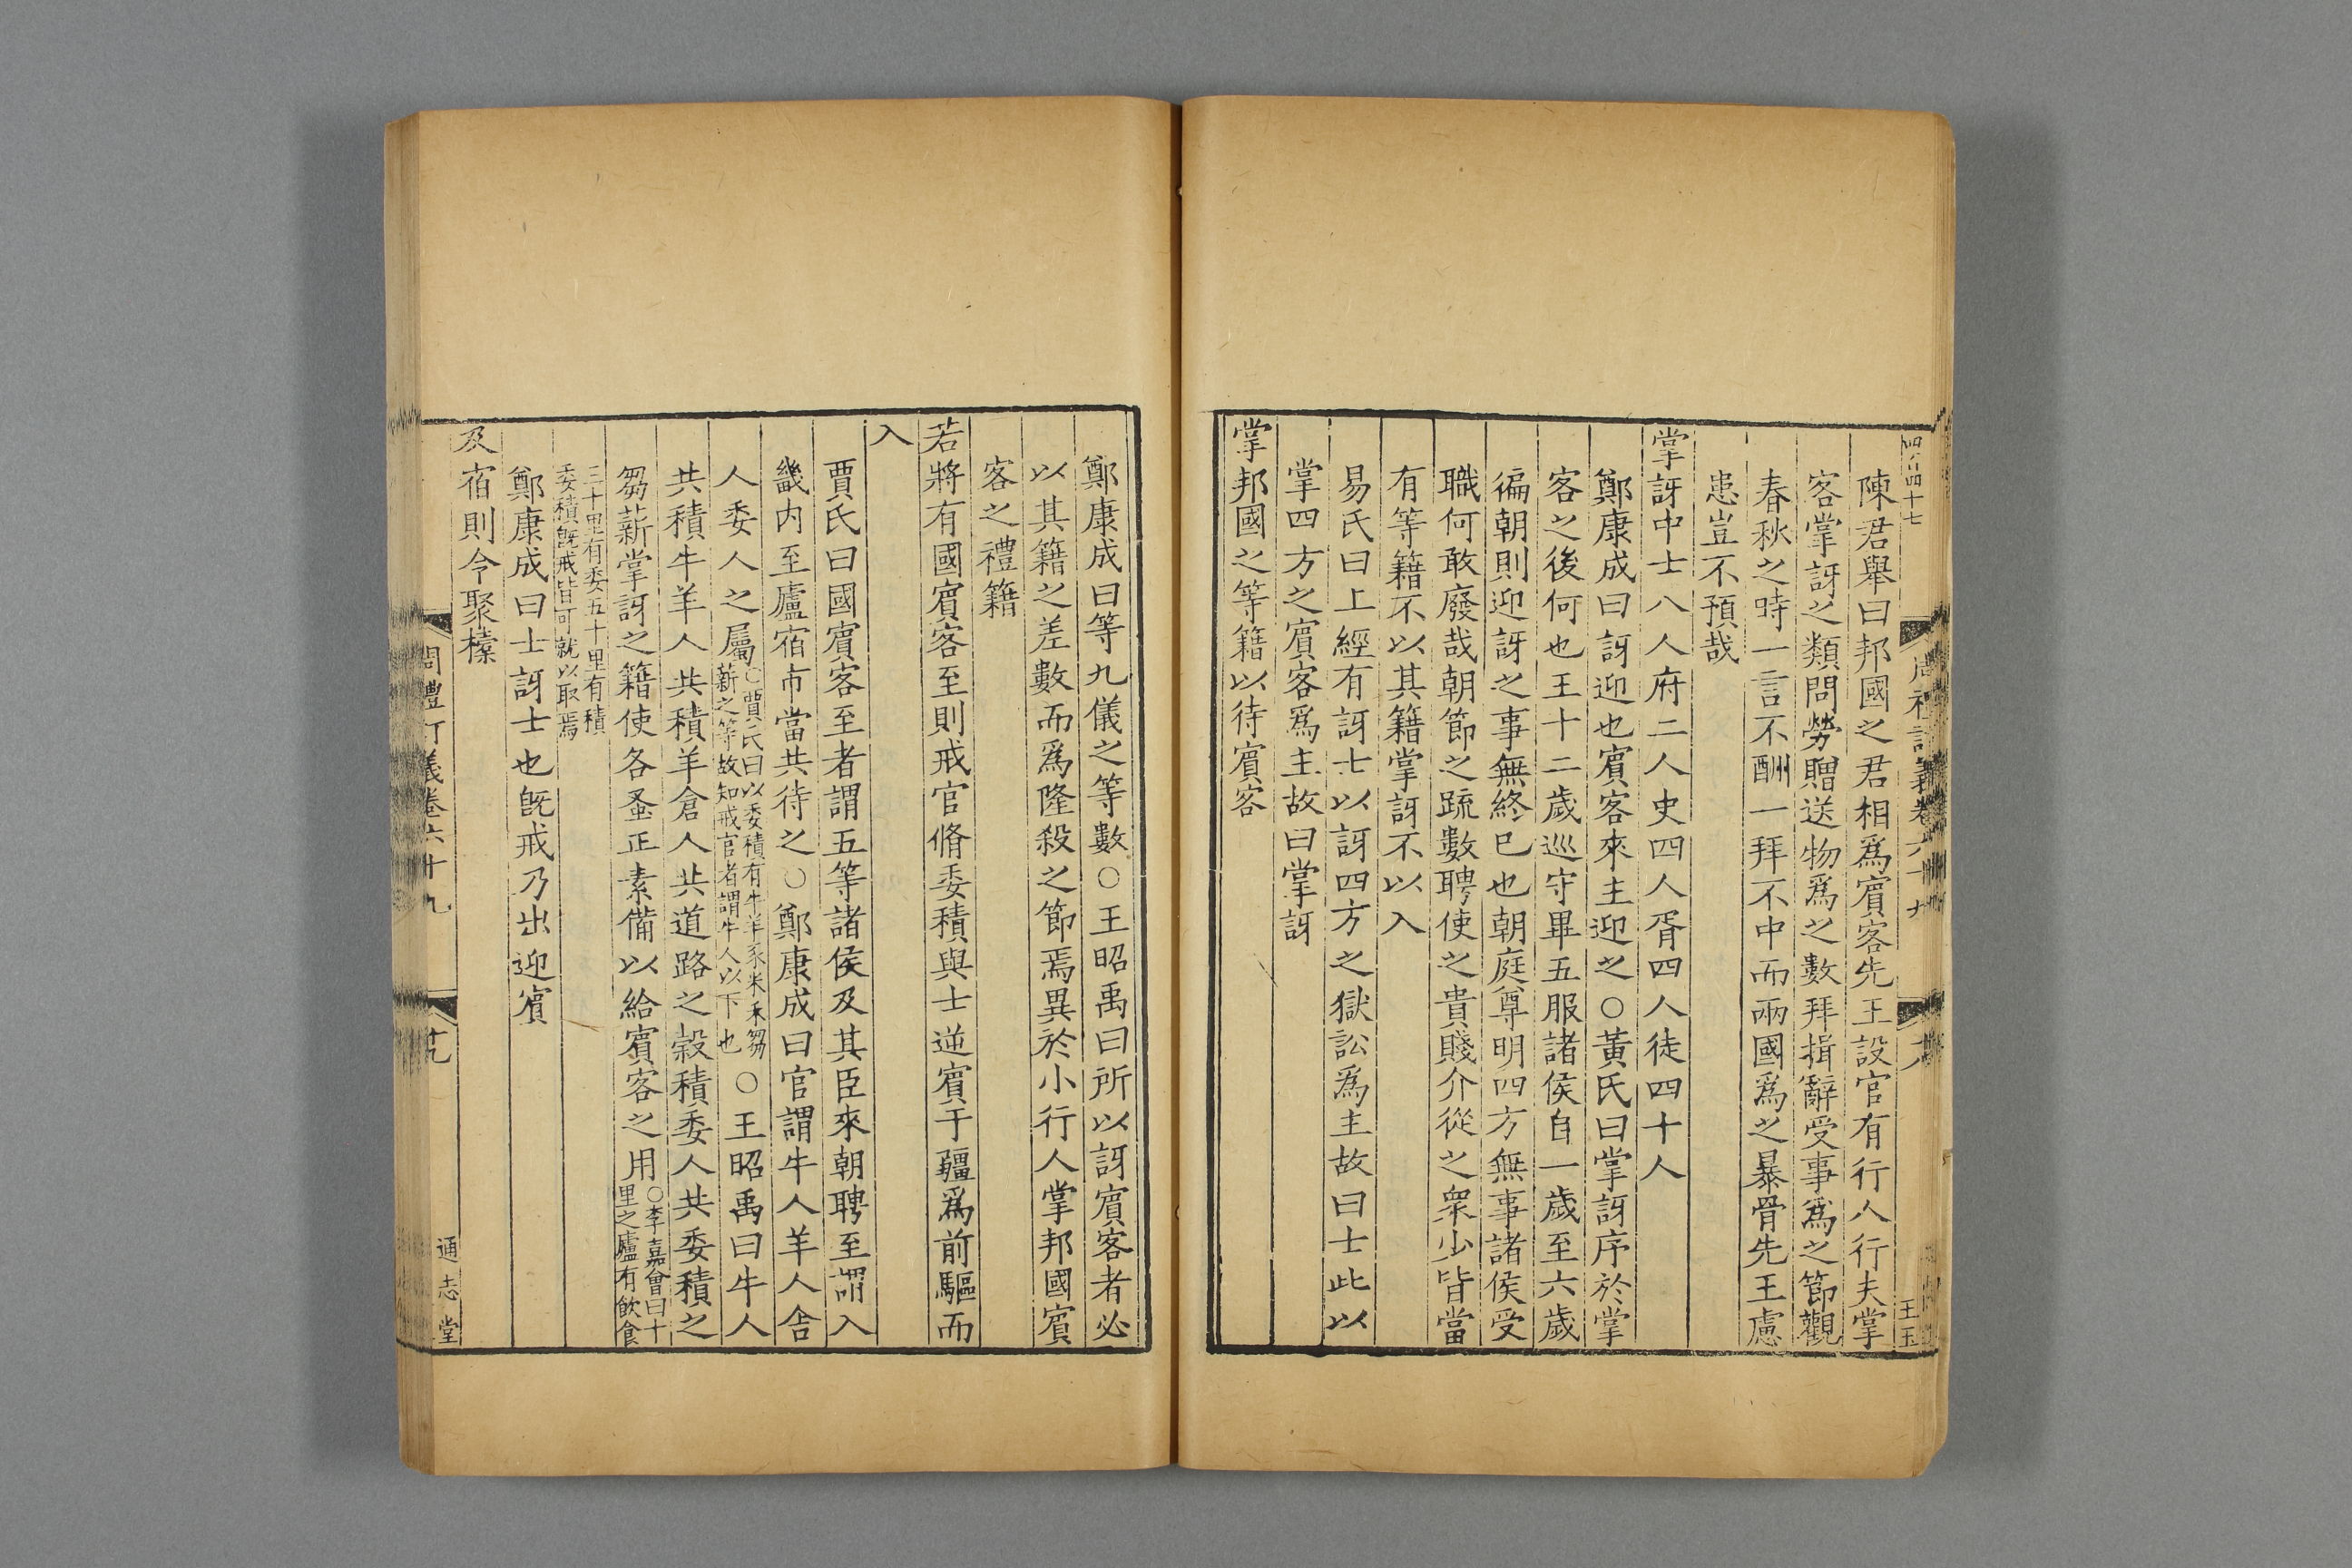 陳君舉曰邦國之君相爲賓客先王設官有行人行夫掌
客掌訝之類問勞贈送物爲之數拜揖辭受事爲之節觀
春秋之時一言不酬一拜不中而兩國爲之暴骨先王慮
患豈不預哉
掌訝中士八人府二人史四人胥四人徒四十人
鄭康成曰訝迎也賓客來主迎之○黃氏曰掌訝序於掌
客之後何也王十二歲巡守畢五服諸侯自一歲至六歲
徧朝則迎訝之事無終已也朝庭尊明四方無事諸侯受
職何敢廢哉朝節之疏數聘使之貴賤介從之衆少皆當
有等籍不以其籍掌訝不以入
易氏曰上經有訝士以訝四方之獄訟爲主故曰士此以
掌四方之賓客爲主故曰掌訝
掌邦國之等籍以待賓客
鄭康成曰等九儀之等數○王昭禹曰所以訝賓客者必
以其籍之差數而爲隆殺之節焉異於小行人掌邦國賓
客之禮籍
若將有國賓客至則戒官脩委積與士逆賓于疆爲前驅而
入
賈氏曰國賓客至者謂五等諸侯及其臣來朝聘至謂入
畿內至廬宿市當共待之○鄭康成曰官謂牛人羊人舍
人委人之屬○賈氏曰以委積有牛羊豕米禾芻薪之等故知戒官者謂牛人以下也○王昭禹曰牛人
共積牛羊人共積羊倉人共道路之穀積委人共委積之
芻薪掌訝之籍使各蚤正素備以給賓客之用○李嘉會曰十里之廬有飲食
三十里有委五十里有積委積旣戒皆可就以取焉
鄭康成曰士訝士也旣戒乃出迎賓
及宿則令聚㯡
周禮訂義卷六十九
十九
通志堂